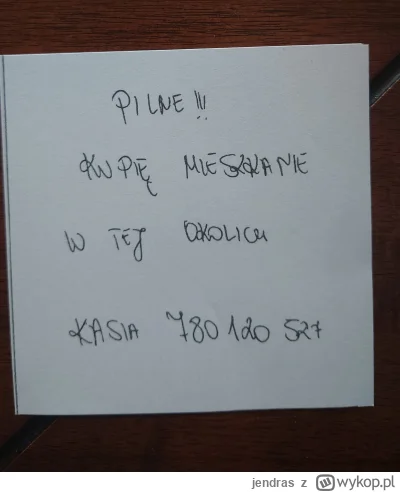 PILNE!!!
KUPIĘ MIESZKANIE
W TEJ OKOLICY
KASIA 780 120 527
jendras z wykop.pl